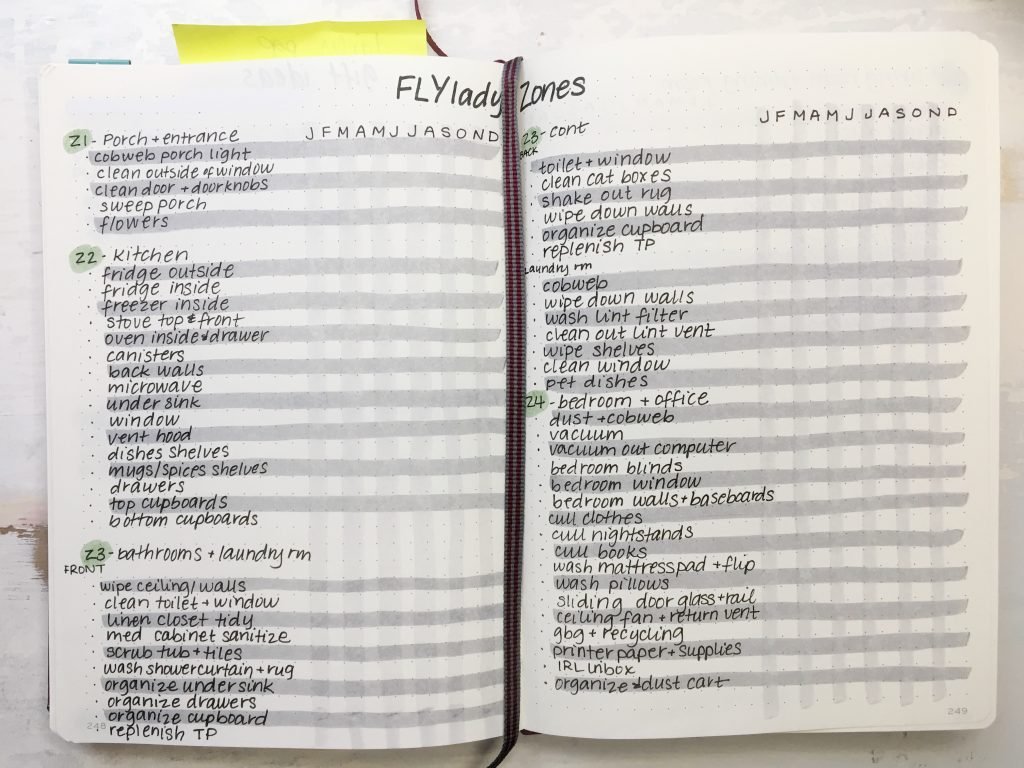 FLYlady Zones
Z1 - Porch + entrance J F M A M J J A S O N D
cobweb porch light
clean outside of window
clean door + doorknobs
sweep porch
flowers
Z2 - Kitchen
fridge outside
fridge inside
freezer inside
stove top & front
oven inside & drawer
canisters
back walls
microwave
under sink
window
vent hood
dishes shelves
mugs/spices shelves
drawers
top cupboards
bottom cupboards
Z3 - bathrooms + laundry rm
FRONT
wipe ceiling/walls
clean toilet + window
linen closet tidy
med cabinet sanitize
scrub tub + tiles
wash shower curtain + rug
organize under sink
organize drawers
organize cupboard
replenish TP
248
J F M A M J J A S O N D
Z3 - cont
BACK
toilet + window
clean cat boxes
shake out rug
wipe down walls
organize cupboard
replenish TP
Laundry rm
cobweb
wipe down walls
wash lint filter
clean out lint vent
wipe shelves
clean window
pet dishes
Z4 - bedroom + office
dust + cobweb
vacuum
vacuum out computer
bedroom blinds
bedroom window
bedroom walls + baseboards
cull clothes
cull nightstands
cull books
wash mattress pad + flip
wash pillows
sliding door glass + rail
ceiling fan + return vent
gbg + recycling
printer paper + supplies
IRL inbox
organize & dust cart
249